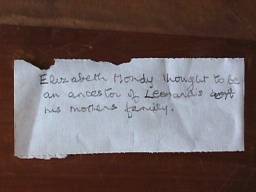 Elizabeth Hondy thought to be
an ancestor of Leonards
his mothers family.